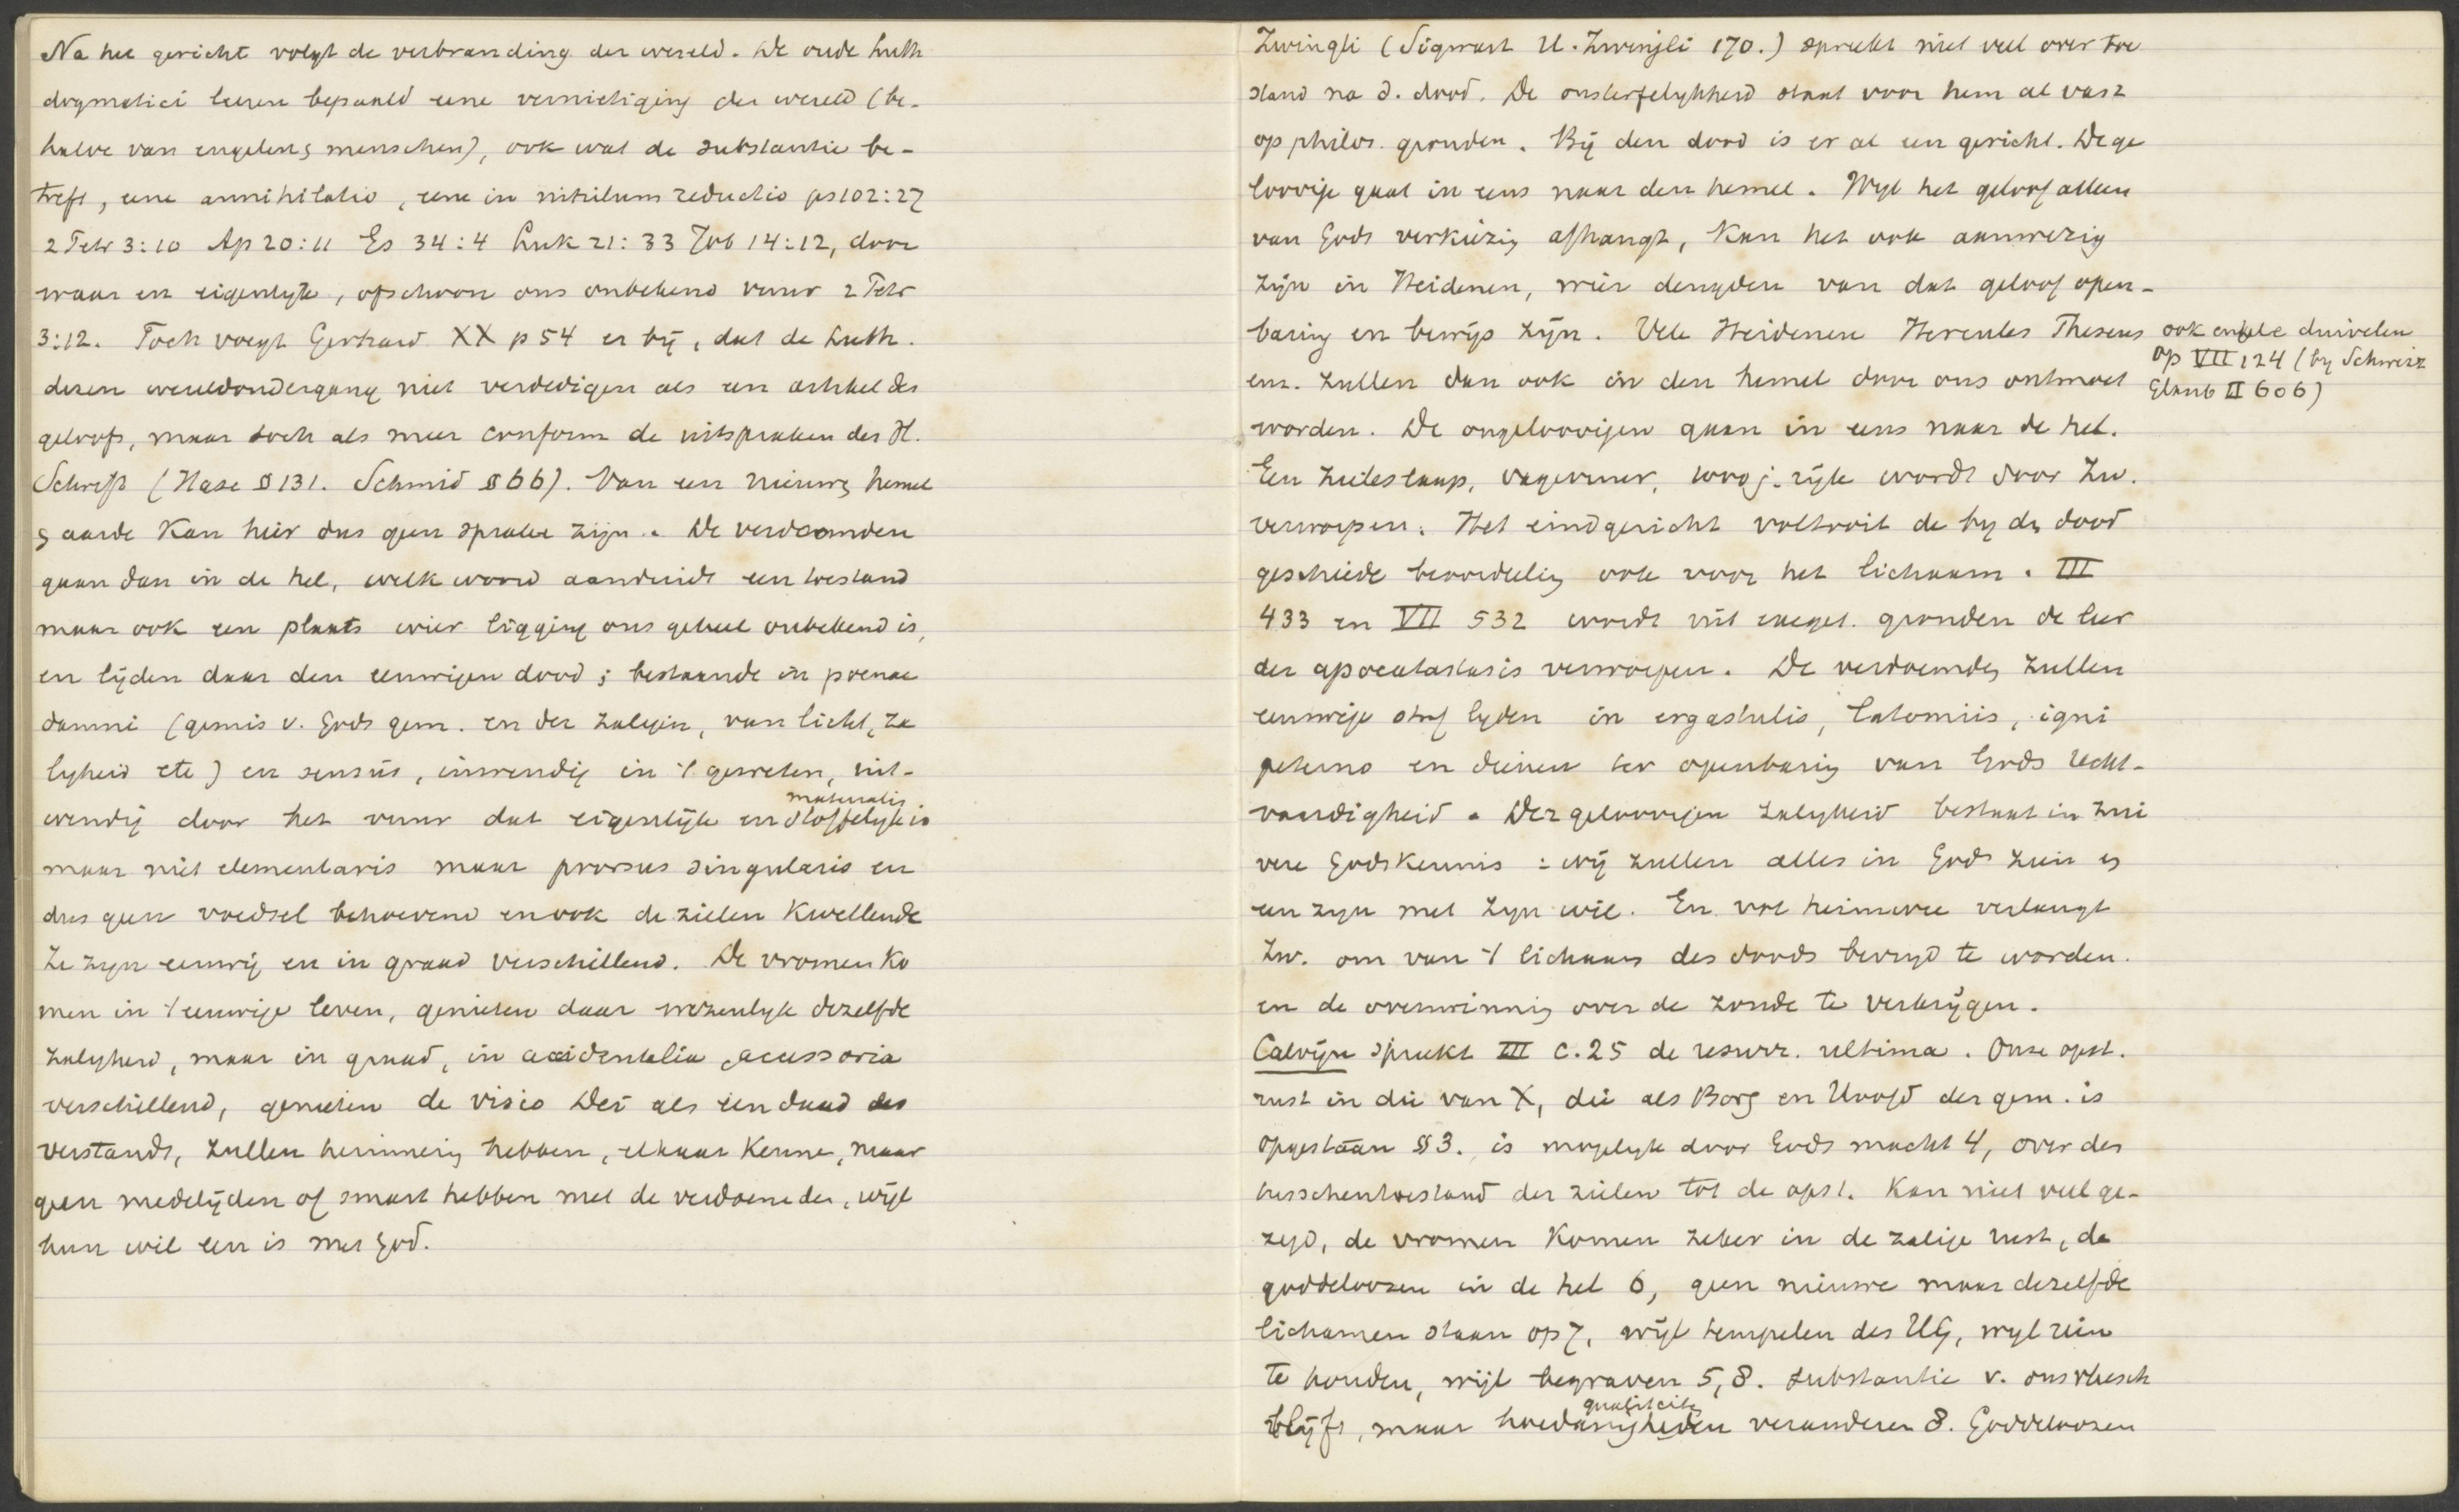 Na het gericht volgt de verbranding der wereld. De oude Luth
dogmatici leeren bepaald eene vernietiging der wereld (be-
halve van engelen & menschen), ook wat de substantie be-
treft, eene annihilatio, eene in nihilum reductio ps 102:27
2 Petr 3:10 Ap 20:11 Es 34:4 Luk 21:33 Job 14:12, door
waar en eigenlyk, ofschoon ons onbekend vuur 2 Petr
3:12. Toch voegt Gerhard XX p 54 er bij, dat de Luth.
dezen wereldondergang niet verdedigen als een artikel des
geloofs, maar toch als meer conform de uitspraken der H.
Schrift (Hase § 131. Schmid § 66). Van een nieuwe hemel
& aarde kan hier dus geen sprake zijn. De verdoemden
gaan dan in de hel, welk woord aanduidt een toestand
maar ook een plaats wier ligging ons geheel onbekend is,
en lijden daar den eeuwigen dood; bestaande in poenae
damni (gemis v. Gods gem. en der zaligen, van licht, za
ligheid etc) en sensus, inwendig in 't geweten, uit-
wendig door het vuur dat eigenlijk en stoffelijk is
materialis
maar niet elementaris maar prorsus singularis en
dus geen voedsel behoevend en ook de zielen kwellende
Ze zyn eeuwig en in graad verschillend. De vromen ko
men in 't eeuwige leven, genieten daar wezenlyk dezelfde
zaligheid, maar in graad, in accidentalia accessoria
verschillend, genieten de visio Dei als een daad des
verstands, zullen herinnering hebben, elkaar kennen, maar
geen medelijden of smart hebben met de verdoemden, wijl
hun wil een is met God.
Zwingli (Sigwart U. Zwingli 170.) spreekt niet veel over toe
stand na d. dood. De onsterfelykheid staat voor hem al vast
op philos. gronden. Bij den dood is er al een gericht. De ge
loovige gaat in eens naar den hemel. Wyl het geloof alleen
van Gods verkiezing afhangt, kan het ook aanwezig
zijn in Heidenen, wier deugden van dat geloof open-
baring en bewijs zijn. Vele Heidenen Hercules Theseus
enz. zullen dan ook in den hemel door ons ontmoet
worden. De ongeloovigen gaan in eens naar de hel.
ook enkele duivelen
op VII 124 (by Schweiz
Glaub II 606)
Een zieleslaap, vagevuur, 1000j. rijk wordt door Zw.
verworpen. Het eindgericht voltooit de by den dood
geschiede beoordeeling ook voor het lichaam. III
433 en VII 532 wordt uit exeget. gronden de leer
der apocatastasis verworpen. De verdoemden zullen
eeuwige straf lyden in ergastulis, latomiis, igni
aeterno en dienen ter openbaring van Gods recht-
vaardigheid. Der geloovigen zaligheid bestaat in zui
vere Godskennis: wij zullen alles in God zien en
een zyn met zyn wil. En vol heimwee verlangt
Zw. om van 't lichaam des doods bevryd te worden.
en de overwinning over de zonde te verkrijgen.
Calvijn spreekt III c. 25 de resurr. ultima. Onze opst.
rust in die van X, die als Borg en Hoofd der gem. is
opgestaan § 3. is mogelyk door Gods macht 4, over den
tusschentoestand der zielen tot de opst. kan niet veel ge-
zegd, de vromen komen zeker in de zalige rust, de
goddeloozen in de hel 6, geen nieuwe maar dezelfde
lichamen staan op 7, wijl tempelen des HG, wyl rein
te houden, wijl begraven 5, 8. substantie v. ons vleesch
blijft, maar hoedanigheden veranderen 8. Goddeloozen